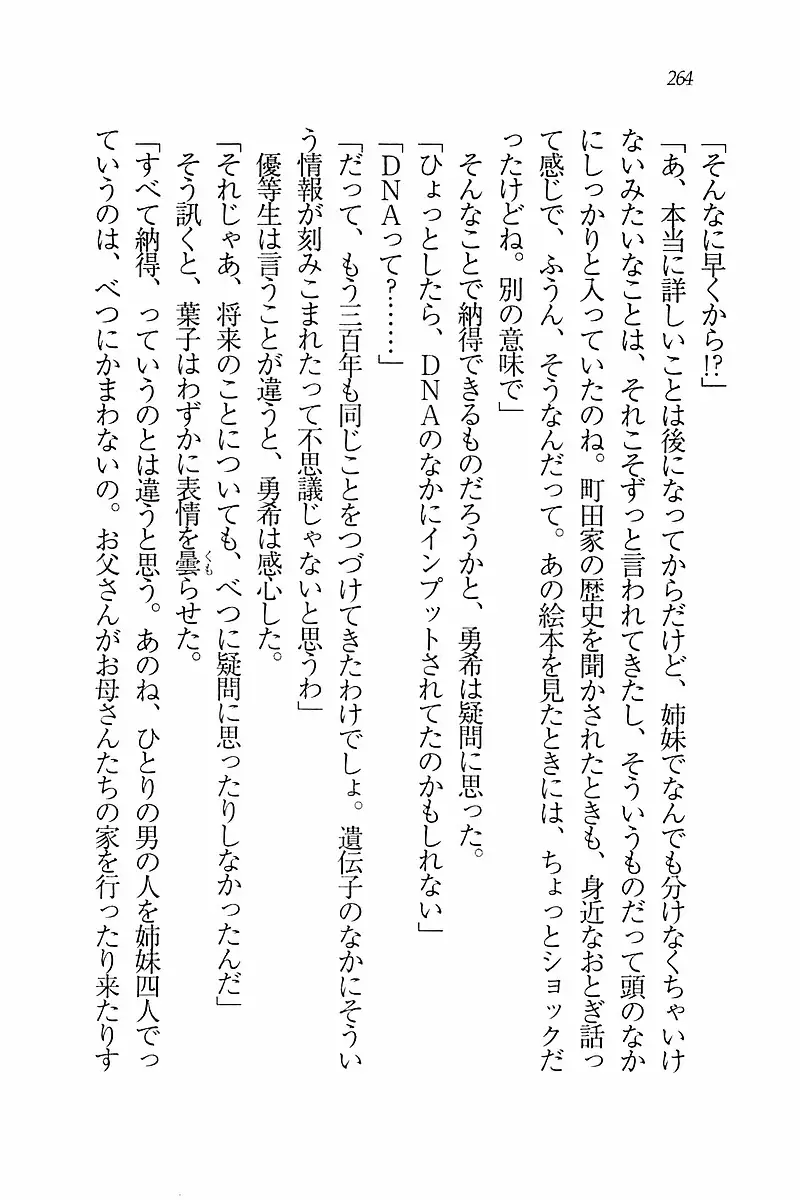 264
「そんなに早くから!?」
「あ、本当に詳しいことは後になってからだけど、姉妹でなんでも分けなくちゃいけ
ないみたいなことは、それこそずっと言われてきたし、そういうものだって頭のなか
にしっかりと入っていたのね。町田家の歴史を聞かされたときも、身近なおとぎ話っ
て感じで、ふうん、そうなんだって。あの絵本を見たときには、ちょっとショックだ
ったけどね。別の意味で」
　そんなことで納得できるものだろうかと、勇希は疑問に思った。
「ひょっとしたら、DNAのなかにインプットされてたのかもしれない」
「DNAって？……」
「だって、もう三百年も同じことをつづけてきたわけでしょ。遺伝子のなかにそうい
う情報が刻みこまれたって不思議じゃないと思うわ」
　優等生は言うことが違うと、勇希は感心した。
「それじゃあ、将来のことについても、べつに疑問に思ったりしなかったんだ」
　そう訊くと、葉子はわずかに表情を曇くもらせた。
「すべて納得、っていうのとは違うと思う。あのね、ひとりの男の人を姉妹四人でっ
ていうのは、べつにかまわないの。お父さんがお母さんたちの家を行ったり来たりす